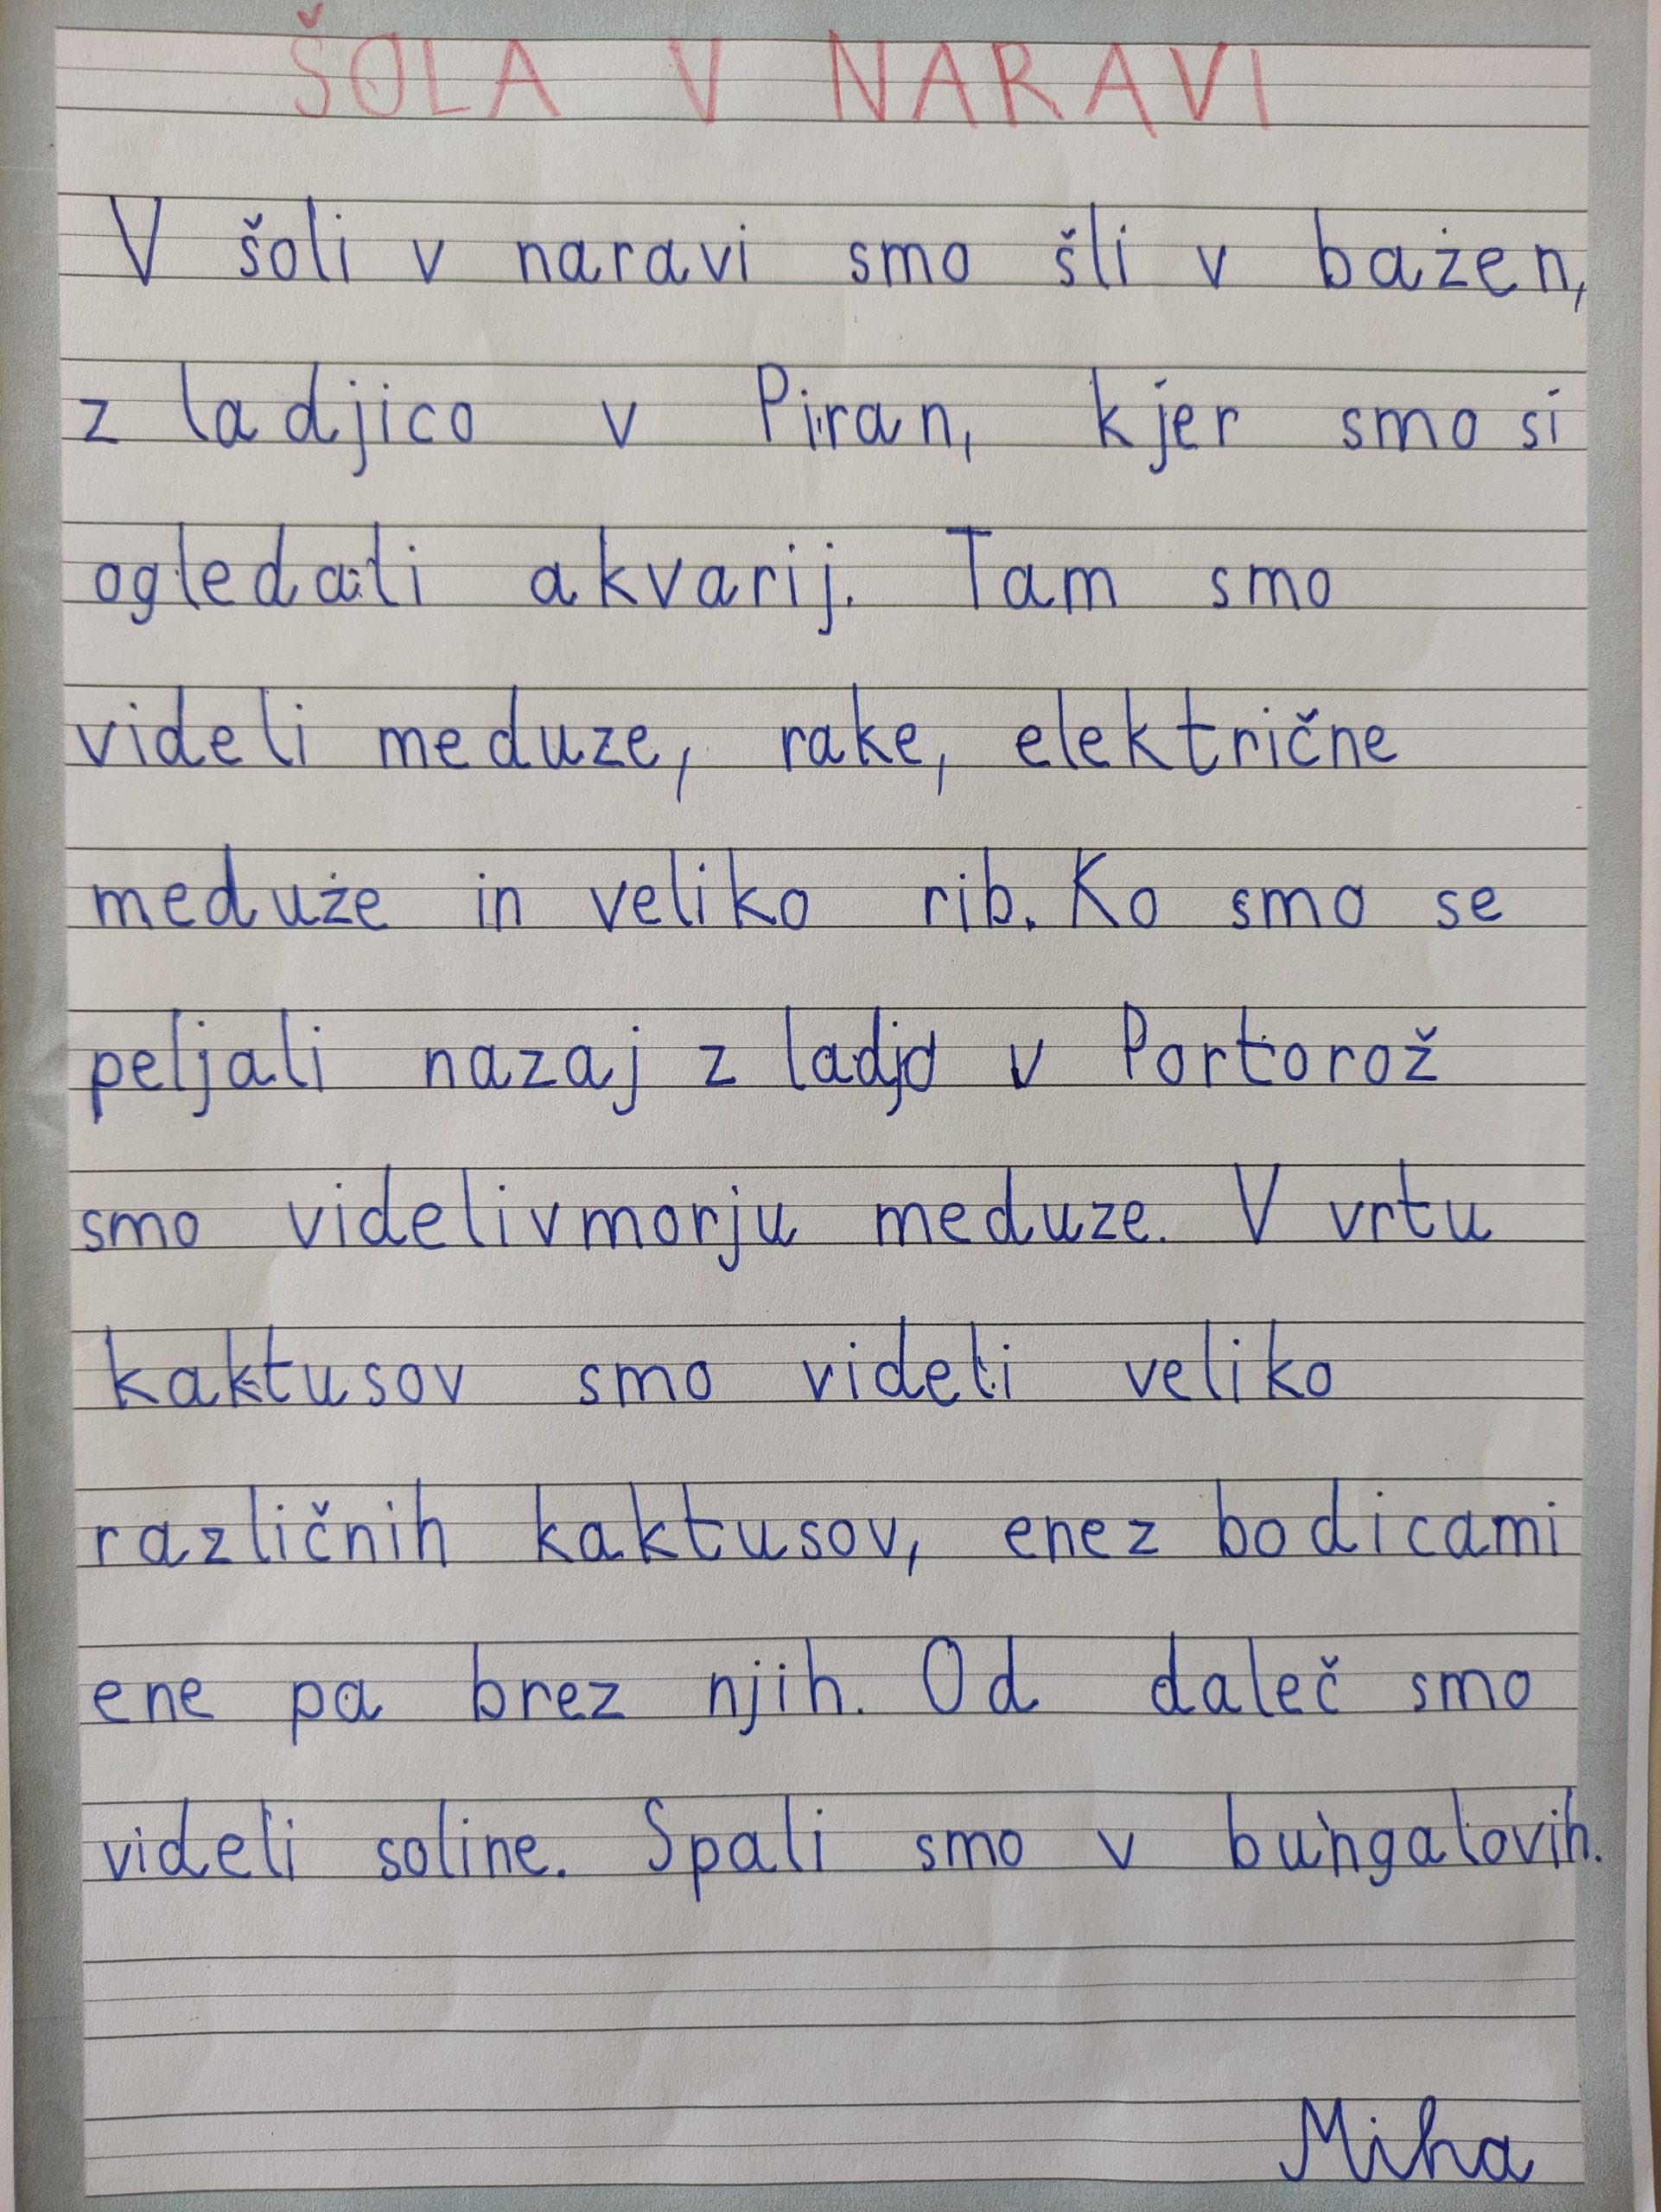 ŠOLA V NARAVI
V šoli v naravi smo šli v bazen,
z ladjico v Piran, kjer smo si
ogledali akvarij. Tam smo
videli meduze, rake, električne
meduże in veliko rib. Ko smo se
peljali nazaj z ladjo v Portorož
smo videlivmorju meduze. V vrtu
kaktusov smo videli veliko
različnih kaktusov, enez bodicami
ene pa brez njih. Od daleč smo
videli soline. Spali smo v bungalovih.
Miha